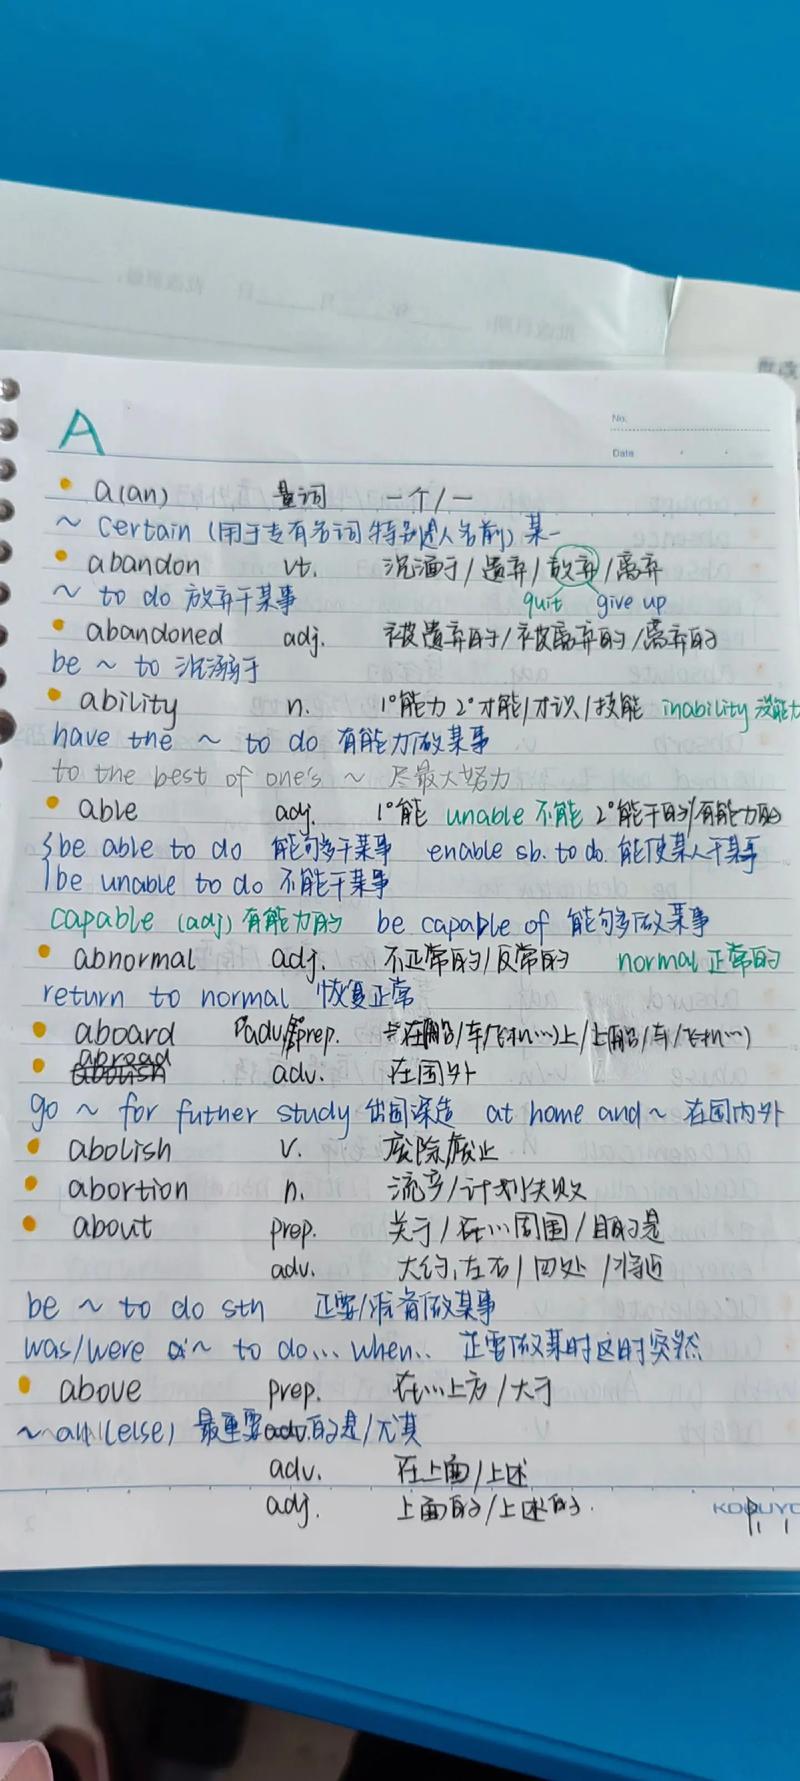 No.
A
Date
a(an) 量词 一个/一
~ certain (用于专有名词特别是人名前) 某一
abandon vt. 沉湎于/遗弃/放弃/离弃
~ to do 放弃干某事 quit give up
abandoned adj. 被遗弃的/被离弃的/离弃的
be ~ to 沉溺于
ability n. 1°能力 2°才能/才识/技能 inability 没能力
have the ~ to do 有能力做某事
to the best of one's ~ 尽最大努力
able adj. 1°能 unable 不能 2°能干的/有能力的
be able to do 能够干某事 enable sb. to do. 能使某人干某事
be unable to do 不能干某事
capable (adj) 有能力的 be capable of 能够做某事
abnormal adj. 不正常的/反常的 normal 正常的
return to normal 恢复正常
aboard adv. prep. 在船/车/飞机…)上/上船/车/飞机…)
abroad adv. 在国外
go ~ for futher study 出国深造 at home and ~ 在国内外
abolish v. 废除,废止
abortion n. 流产/计划失败
about prep. 关于/在…周围/目的是
adv. 大约,左右/四处/将近
be ~ to do sth 正要/准备做某事
was/were ~ to do... when.. 正要做某时这时突然
above prep. 在…上方/大于
~ all (else) 最重要的是/尤其
adv. 在上面/上述
adj. 上面的/上述的.
KOKUYO
P. 1